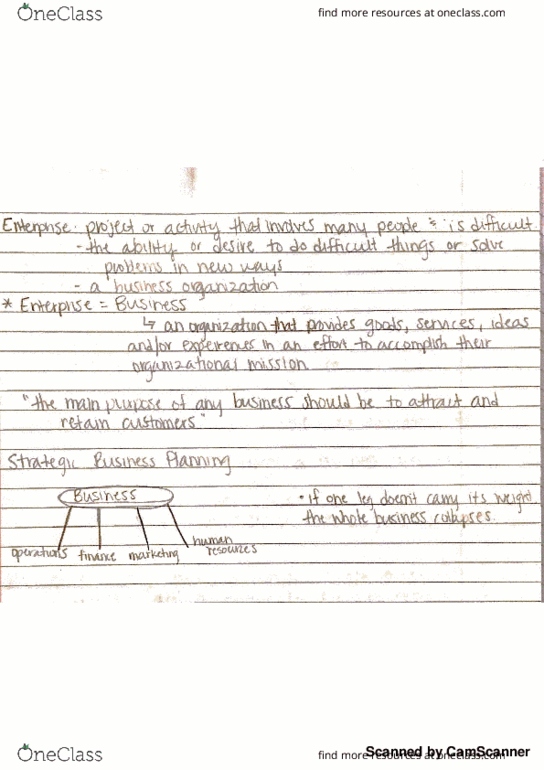 OneClass
find more resources at oneclass.com
Enterprise: project or activity that involves many people & is difficult
- the ability or desire to do difficult things or solve
problems in new ways
- a business organization
* Enterprise = Business
↳ an organization that provides goods, services, ideas
and/or experiences in an effort to accomplish their
organizational mission
"the main purpose of any business should be to attract and
retain customers"
Strategic Business Planning
Business
• If one leg doesn't carry its weight
the whole business collapses.
operations finance marketing human
resources
OneClass
find more resources at oneclass.com
Scanned by CamScanner